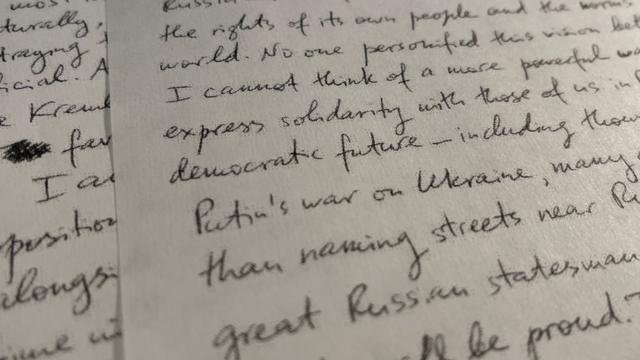 turally,
traying
icial. A
e Kreml
fav
I a
position
alongsi
the rights of its own people and the norms
world. No one personified this vision be
I cannot think of a more powerful wa
express solidarity with those of us in
democratic future – including thou
Putin's war on Ukraine, many
than naming streets near Ru
great Russian statesman
be proud.